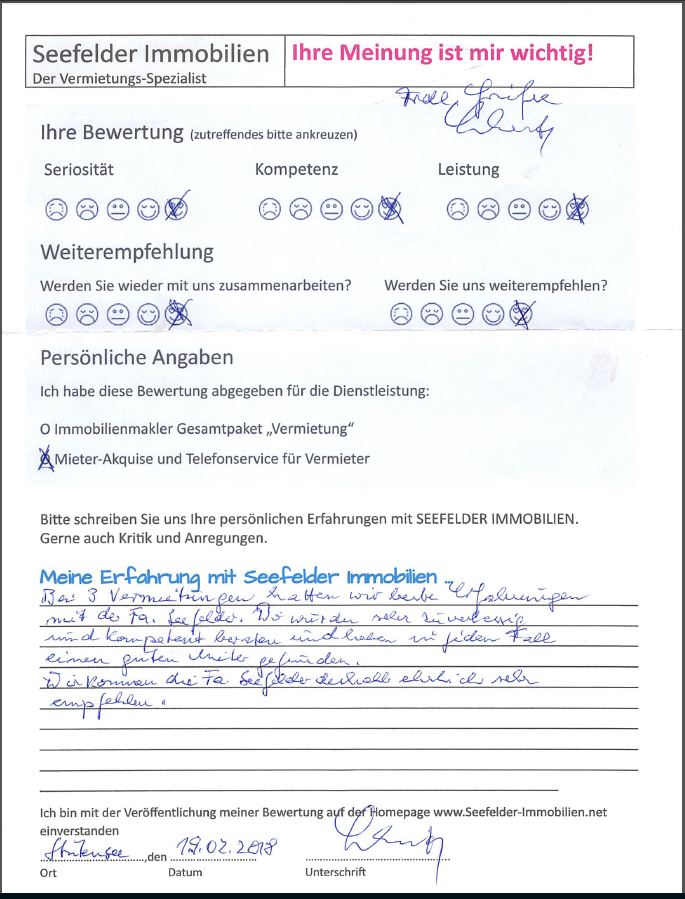 Seefelder Immobilien
Der Vermietungs-Spezialist
Ihre Meinung ist mir wichtig!
Frau
Ihre Bewertung (zutreffendes bitte ankreuzen)
Seriosität Kompetenz Leistung
Weiterempfehlung
Werden Sie wieder mit uns zusammenarbeiten? Werden Sie uns weiterempfehlen?
Persönliche Angaben
Ich habe diese Bewertung abgegeben für die Dienstleistung:
O Immobilienmakler Gesamtpaket „Vermietung“
O Mieter-Akquise und Telefonservice für Vermieter
Bitte schreiben Sie uns Ihre persönlichen Erfahrungen mit SEEFELDER IMMOBILIEN.
Gerne auch Kritik und Anregungen.
Meine Erfahrung mit Seefelder Immobilien ...
Bei 3 Vermietungen hatten wir beste Erfahrungen
mit der Fa. Seefelder. Wir wurden sehr zuverlässig
und kompetent beraten und haben in jeden Fall
einen guten Mieter gefunden.
Wir können die Fa. Seefelder deshalb ehrlich sehr
empfehlen.
Ich bin mit der Veröffentlichung meiner Bewertung auf der Homepage www.Seefelder-Immobilien.net
einverstanden
Stutensee ,den 19.02.2018
Ort Datum Unterschrift